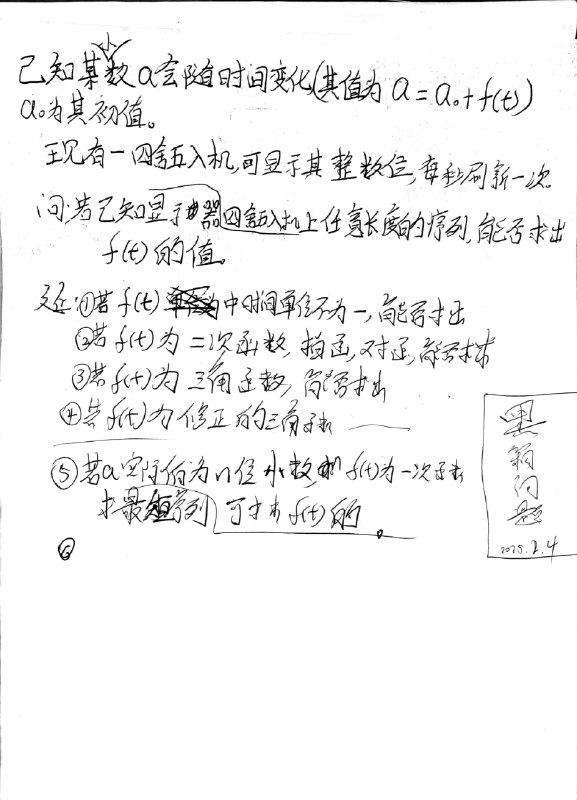 已知某小数a会随时间变化(其值为 a = a₀ + f(t))
a₀为其初值。
现有一四舍五入机,可显示其整数位,每秒刷新一次
问:若已知显示器四舍五入机上任意长度的序列,能否求出
f(t)的值。
①若f(t)中时间单位不为一,能否求出
②若f(t)为二次函数,指函,对函,能否求
③若f(t)为三角函数,能否求出
④若f(t)为修正的三角函数
⑤若a实际值为n位小数和f(t)为一次函数
求最短序列可求f(t)的
⑥
问题
2025.2.4